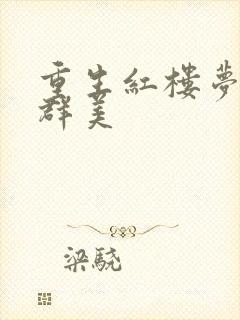 重生紅樓夢
群美
梁驍